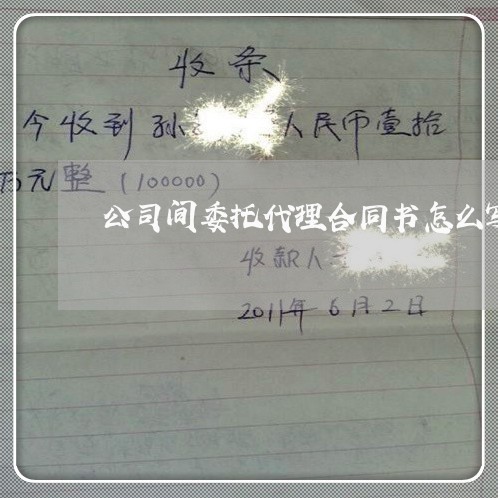 收条
今收到孙人民币壹拾
万元整（100000）
公司间委托代理合同书怎么写
收款人
2011年6月2日